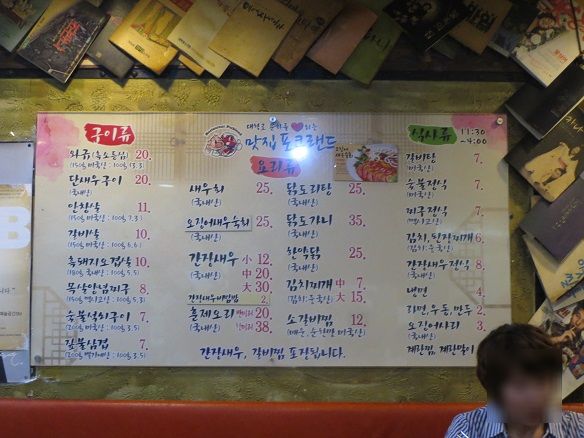 대학로 문화를 ♥ 하는
맛집 포크랜드
구이류
와규(흑소등심) 20.
(150g 미국산 : 100g 13.3)
단새우구이 20.
(국내산)
안창살 11.
(150g 미국산 : 100g 7.3)
갈비살 10.
(150g 미국산 : 100g 6.6)
흑돼지오겹살 10.
(180g 국내산 : 100g 5.5)
목살양념찌국 8.
(150g 멕시코산 : 100g 5.3)
숯불석쇠구이 7.
(200g 국내산 : 100g 3.5)
짚불삼겹 7.
(200g 벨기에산 : 100g 3.5)
요리류
새우회 25.
(국내산)
오징어새우숙회 25.
(국내산)
간장새우 小 12.
(국내산) 中 20.
大 30.
간장새우비빔밥 2.
훈제오리 반마리 20.
(국내산) 한마리 38.
닭도리탕 25.
(국내산)
닭도가니 35.
(국내산)
한약닭 25.
(국내산)
김치찌개 中 7.
(김치:중국산) 大 15.
소갈비찜 12.
간장새우, 갈비찜 포장됩니다.
식사류 11:30
~4:00
갈비탕 7.
(미국산)
숯불정식 7.
(국내산)
찌국정식 7.
(멕시코산)
김치, 된장찌개 6.
간장새우정식 8.
(국내산)
냉면 4.
라면, 우동, 만두 2.
오징어사리 3.
(국내산)
계란찜, 계란말이